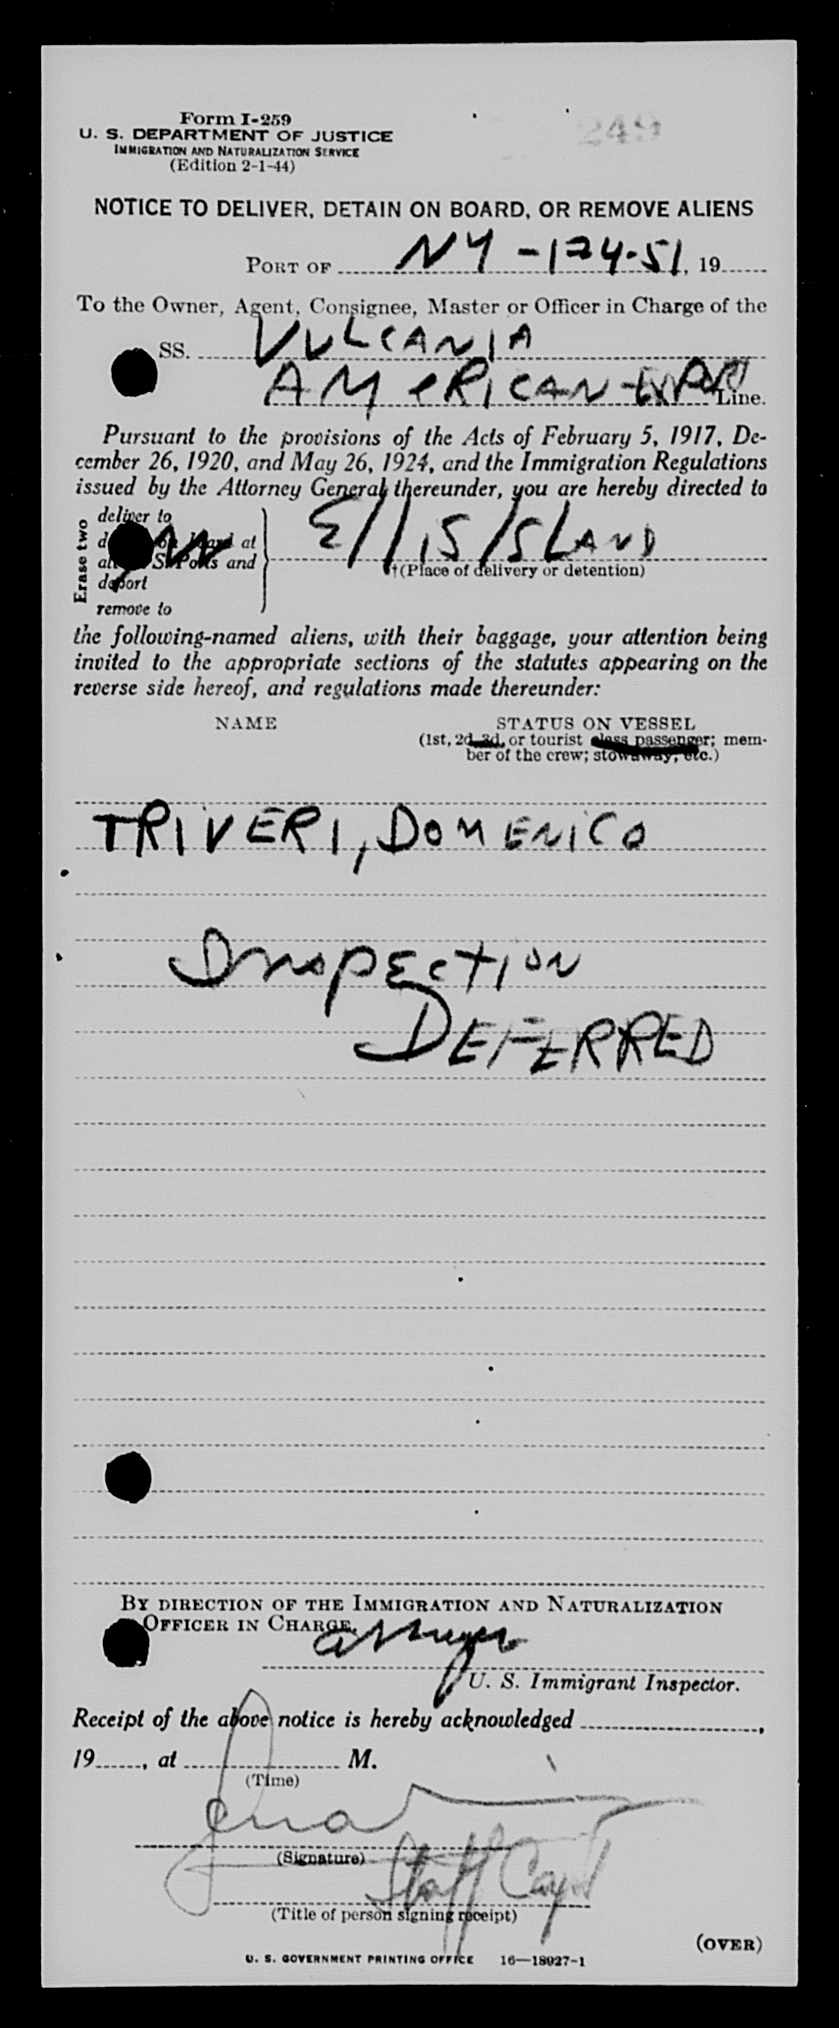 Form I-259
U. S. DEPARTMENT OF JUSTICE
IMMIGRATION AND NATURALIZATION SERVICE
(Edition 2-1-44)
249
NOTICE TO DELIVER, DETAIN ON BOARD, OR REMOVE ALIENS
PORT OF NY - 124-51, 19
To the Owner, Agent, Consignee, Master or Officer in Charge of the
SS. VULCANIA
AMERICAN EXPORT Line.
Pursuant to the provisions of the Acts of February 5, 1917, De-
cember 26, 1920, and May 26, 1924, and the Immigration Regulations
issued by the Attorney General thereunder, you are hereby directed to
Erase two
deliver to
at
and
deport
remove to
ELLIS ISLAND
†(Place of delivery or detention)
the following-named aliens, with their baggage, your attention being
invited to the appropriate sections of the statutes appearing on the
reverse side hereof, and regulations made thereunder:
NAME STATUS ON VESSEL
(1st, 2d, 3d, or tourist class passenger; mem-
ber of the crew; stowaway, etc.)
TRIVERI, DOMENICO
INSPECTION
DEFERRED
BY DIRECTION OF THE IMMIGRATION AND NATURALIZATION
OFFICER IN CHARGE.
U. S. Immigrant Inspector.
Receipt of the above notice is hereby acknowledged ,
19 , at M.
(Time)
(Signature)
Staff Capt
(Title of person signing receipt)
(OVER)
U. S. GOVERNMENT PRINTING OFFICE 16—18927-1